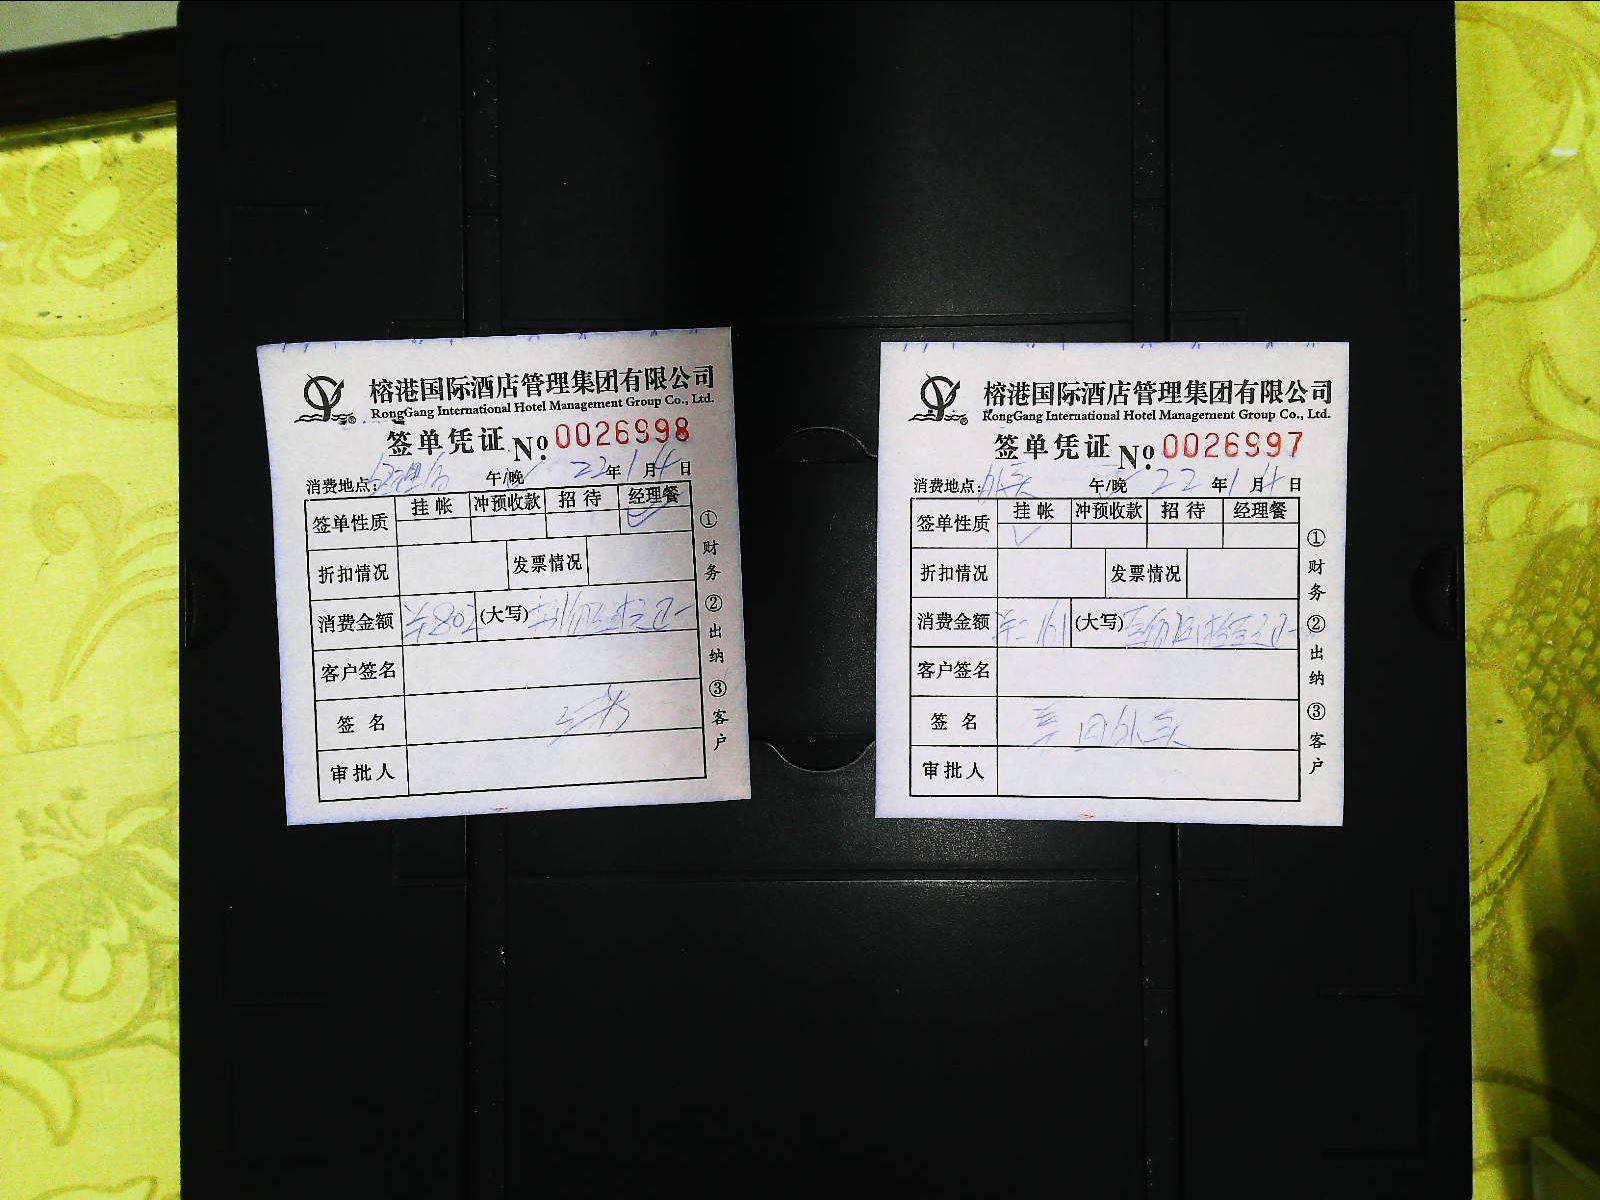 榕港国际酒店管理集团有限公司
RongGang International Hotel Management Group Co., Ltd.
签单凭证 No: 0026998
消费地点: 午/晚 22年1月4日
签单性质 挂帐 冲预收款 招待 经理餐
折扣情况 发票情况
消费金额 (大写)
客户签名
签名
审批人
①财务 ②出纳 ③客户
榕港国际酒店管理集团有限公司
RongGang International Hotel Management Group Co., Ltd.
签单凭证 No: 0026997
消费地点: 外卖 午/晚 22年1月4日
签单性质 挂帐 冲预收款 招待 经理餐
折扣情况 发票情况
消费金额 (大写)
客户签名
签名 美团外卖
审批人
①财务 ②出纳 ③客户